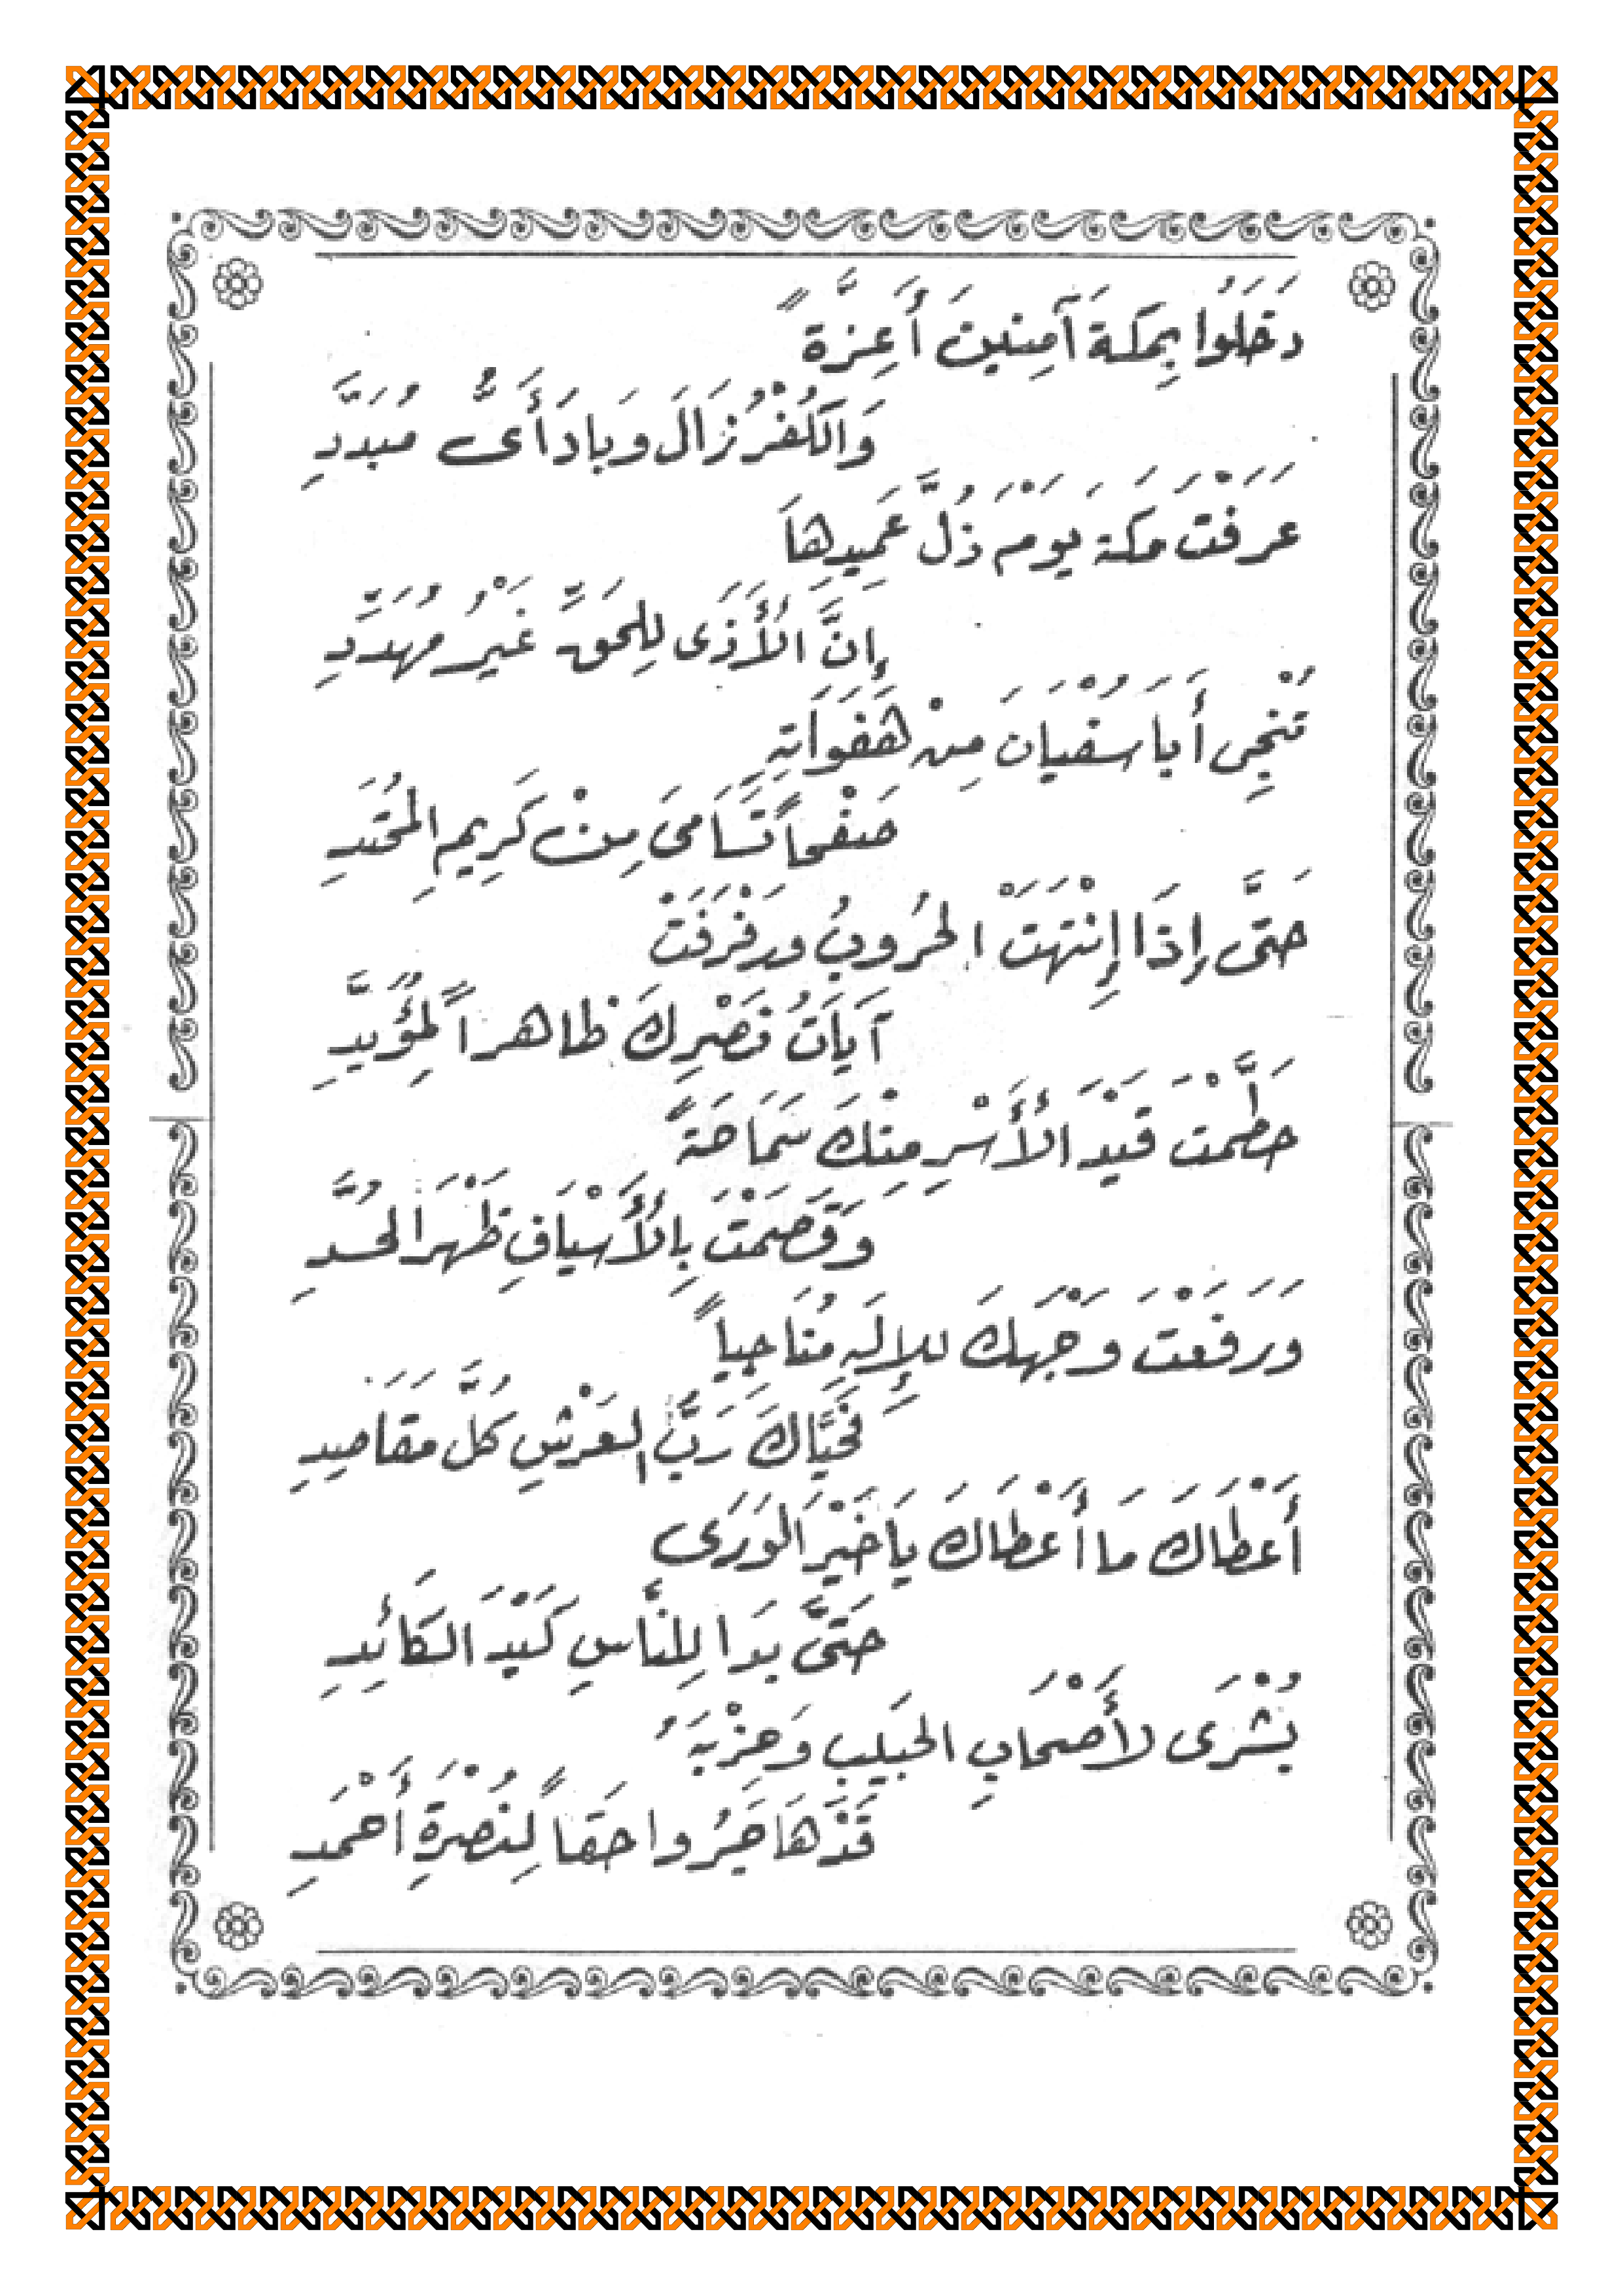 دَخَلُوا بِمَكَةَ آمِنِينَ أَعِزَّةً
وَالكُفْرُ زَالَ وَبَادَ أَىَّ مُبَدَّدِ
عَرَفْتَ مَكَةَ يَوْمَ ذُلَّ عَمِيدِهَا
إِنَّ الأَذَى لِلحَقِّ غَيْرُ مُهَدَّدِ
تُنْجِى أَبَا سُفْيَانَ مِنْ هَفَوَاتِهِ
صَفْحاً تَسَامَى مِنْ كَرِيمِ المُحْتَدِ
حَتَّى إِذَا إِنْتَهَتْ الحُرُوبُ وَرَفْرَفَتْ
آيَاتُ نَصْرِكَ ظاهراً لِمُؤَيَّدِ
حَطَّمْتَ قَيْدَ الأَسْرِ مِنْكَ سَمَاحَةً
وَقَصَمْتَ بِالأَسْيَافِ ظَهْرَ الحُسَّدِ
وَرَفَعْتَ وَجْهَكَ للإِلَهِ مُنَاجِياً
فَحَيَّاكَ رَبُّ العَرْشِ كُلَّ مَقَاصِدِ
أَعْطَاكَ مَا أَعْطَاكَ يَا خَيْرَ الوَرَى
حَتَّى بَدَا لِلنَّاسِ كَيْدَ الكَائِدِ
بُشْرَى لأَصْحَابِ الحَبِيبِ وَحِزْبَهُ
قَدْ هَاجَرُوا حَقاً لِنُصْرَةِ أَحْمَدِ